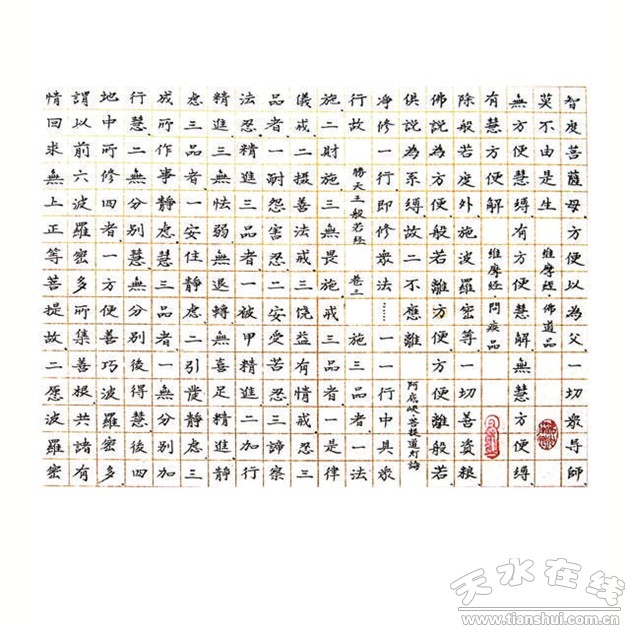 智度菩薩母方便以為父一切眾導師
莫不由是生 維摩經·佛道品
無方便慧縛有方便慧解無慧方便縛
有慧方便解 維摩經 問疾品
除般若度外施波羅密等一切善資糧
佛說為方便般若離方便方便離般若
俱說為系縛故二不應離 阿底峽菩提道灯論
淨修一行即修眾法……一行中具眾
行故 勝天王般若經 卷三 施三品者一法
施二財施三無畏施戒三品者一是律
儀戒二善法戒三饒益有情戒忍三
品者一耐怨害忍二安受苦忍三諦察
法忍精進三品者一被甲精進二加行
精進三無怯弱無退轉無喜足精進靜
慮三品者一安住靜慮二引發靜慮三
成所作事靜慮慧三品者一無分別加
行慧二無分別慧三無分別後得慧後四
地中所修四者一方便善巧波羅密多
謂以前六波羅密多所集善根共諸有
情回求無上正等菩提故二愿波羅密
天水在线
www.tianshui.com.cn